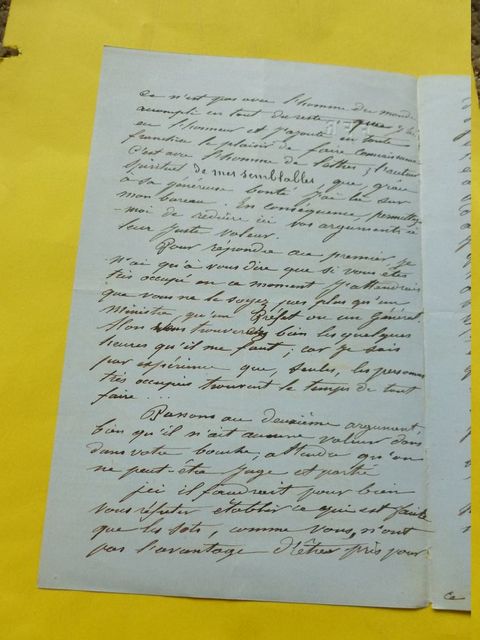 Ce n'est pas avec l'homme du monde
accompli en tout du reste, que j'ai
eu l'honneur et j'ajoute en toute
franchise le plaisir de faire connaissance
C'est avec l'homme de lettres, l'auteur
spirituel de mes semblables que grâce
à sa généreuse bonté j'ai lu sur
mon bureau. En conséquence, permettez
-moi de réduire ici vos arguments à
leur juste valeur.
Pour répondre au premier, je
n'ai qu'à vous dire que si vous êtes
très occupé en ce moment j'attendrai
que vous ne le soyez pas plus qu'un
Ministre, qu'un Préfet ou un Général.
Vous trouverez bien les quelques
heures qu'il me faut ; car je sais
par expérience que, seules, les personnes
très occupées trouvent le temps de tout
faire...
Passons au deuxième argument
bien qu'il n'ait aucune valeur dans
votre bouche, attendu qu'on
ne peut être juge et partie
ici il faudrait pour bien
vous réfuter établir ce qui est faux
que les sots, comme vous, n'ont
pas l'avantage d'être pris pour
Ce